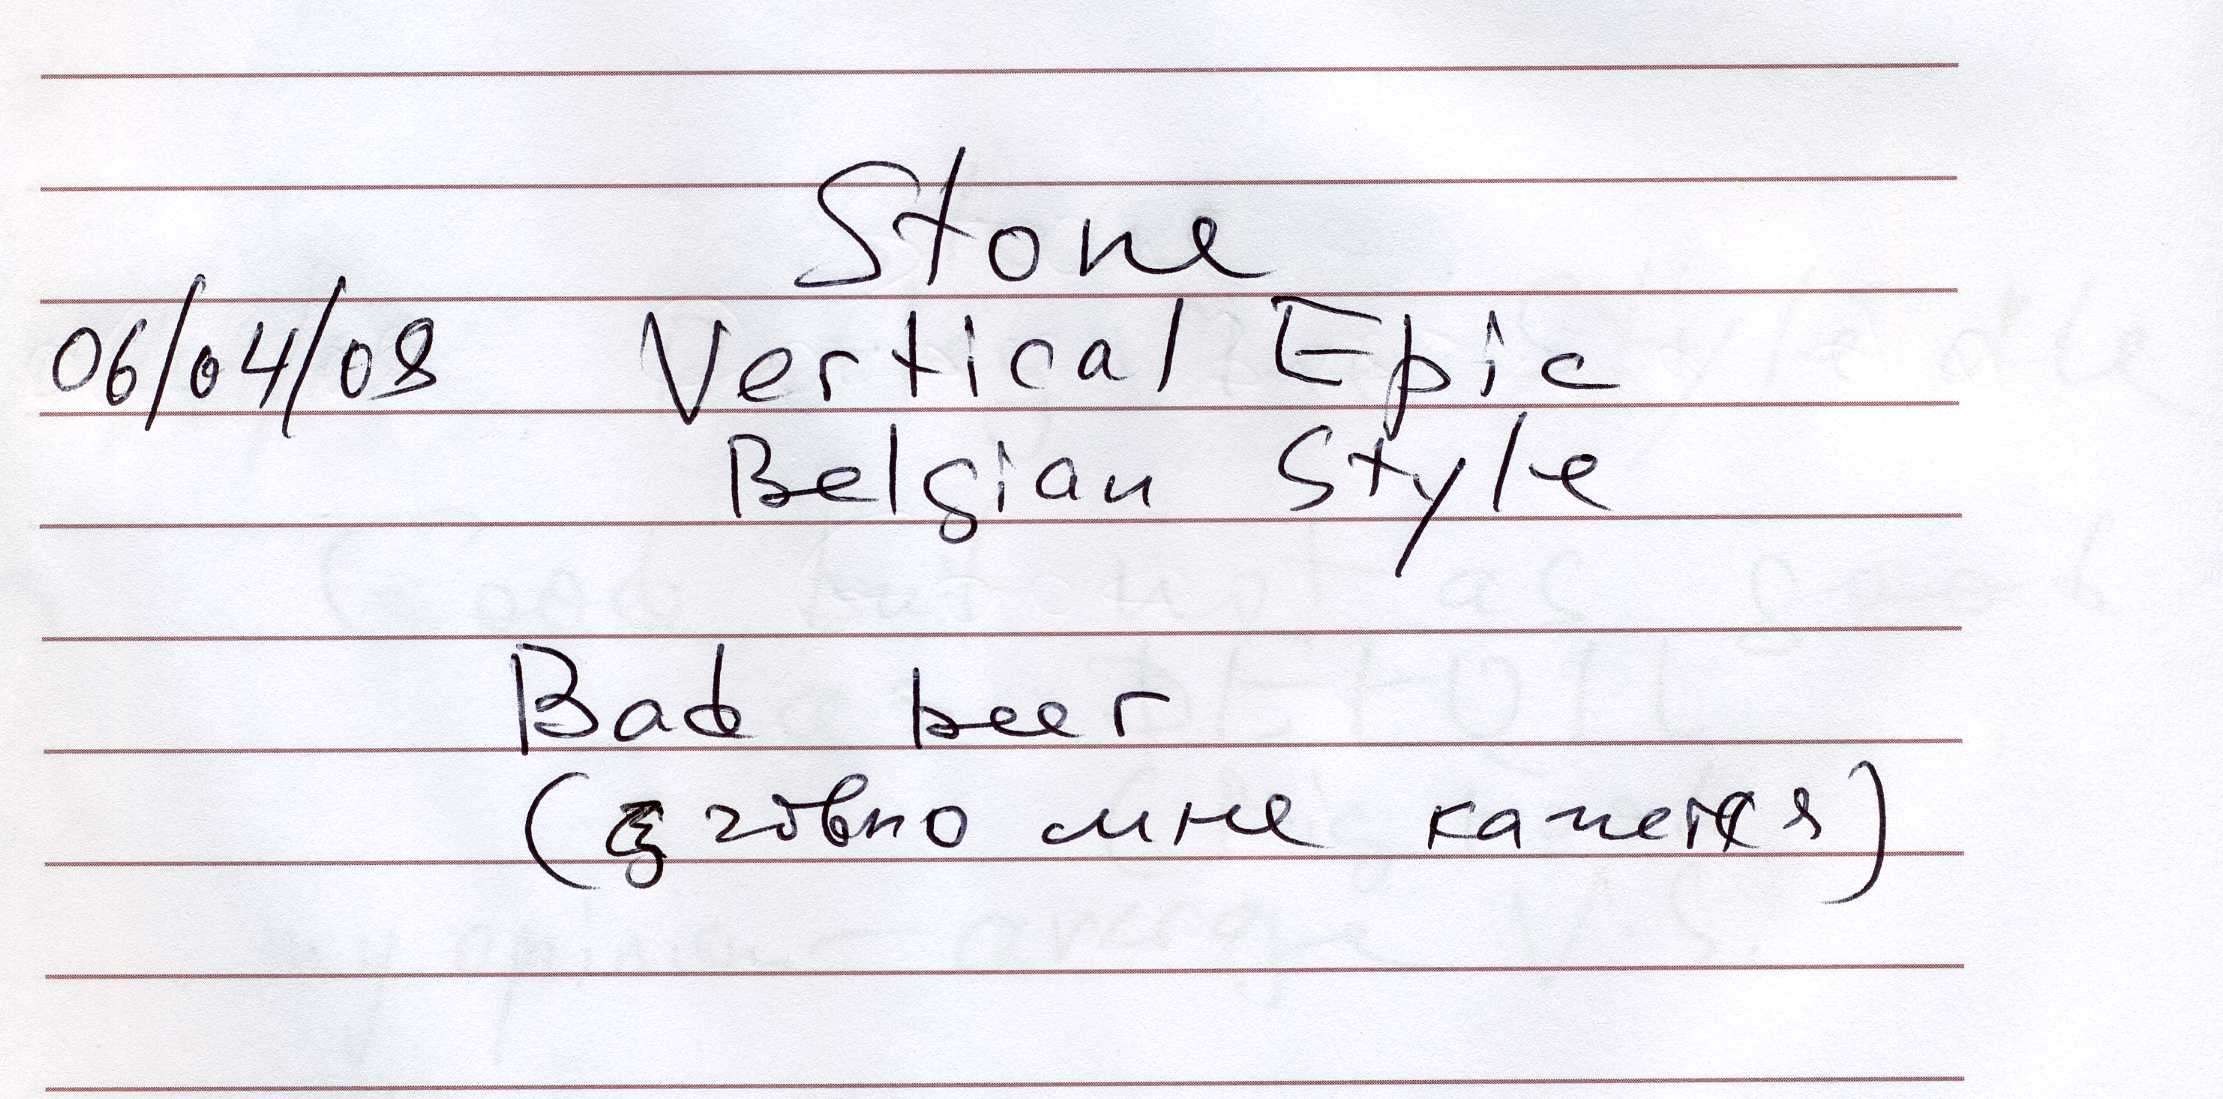 Stone
06/04/08 Vertical Epic
Belgian Style
Bad beer
(говно мне кажется)